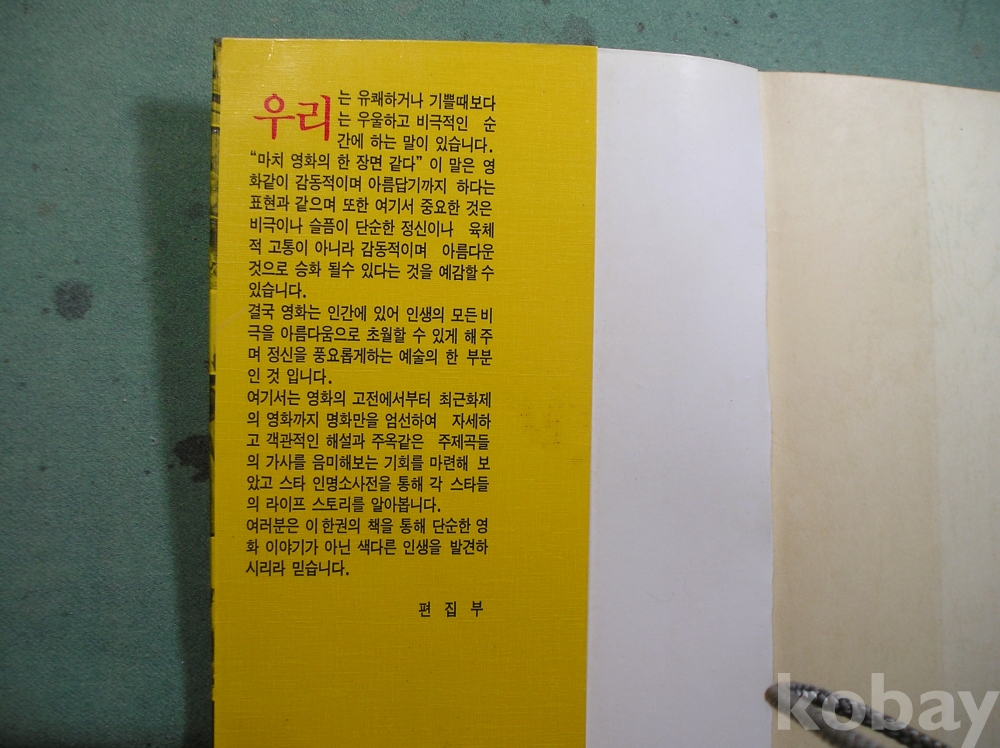 우리는 유쾌하거나 기쁠때보다
는 우울하고 비극적인 순
간에 하는 말이 있습니다.
“마치 영화의 한 장면 같다” 이 말은 영
화같이 감동적이며 아름답기까지 하다는
표현과 같으며 또한 여기서 중요한 것은
비극이나 슬픔이 단순한 정신이나 육체
적 고통이 아니라 감동적이며 아름다운
것으로 승화 될수 있다는 것을 예감할 수
있습니다.
결국 영화는 인간에 있어 인생의 모든 비
극을 아름다움으로 초월할 수 있게 해 주
며 정신을 풍요롭게하는 예술의 한 부분
인 것 입니다.
여기서는 영화의 고전에서부터 최근화제
의 영화까지 명화만을 엄선하여 자세하
고 객관적인 해설과 주옥같은 주제곡들
의 가사를 음미해보는 기회를 마련해 보
았고 스타 인명소사전을 통해 각 스타들
의 라이프 스토리를 알아봅니다.
여러분은 이 한권의 책을 통해 단순한 영
화 이야기가 아닌 색다른 인생을 발견하
시리라 믿습니다.
편 집 부
kobay